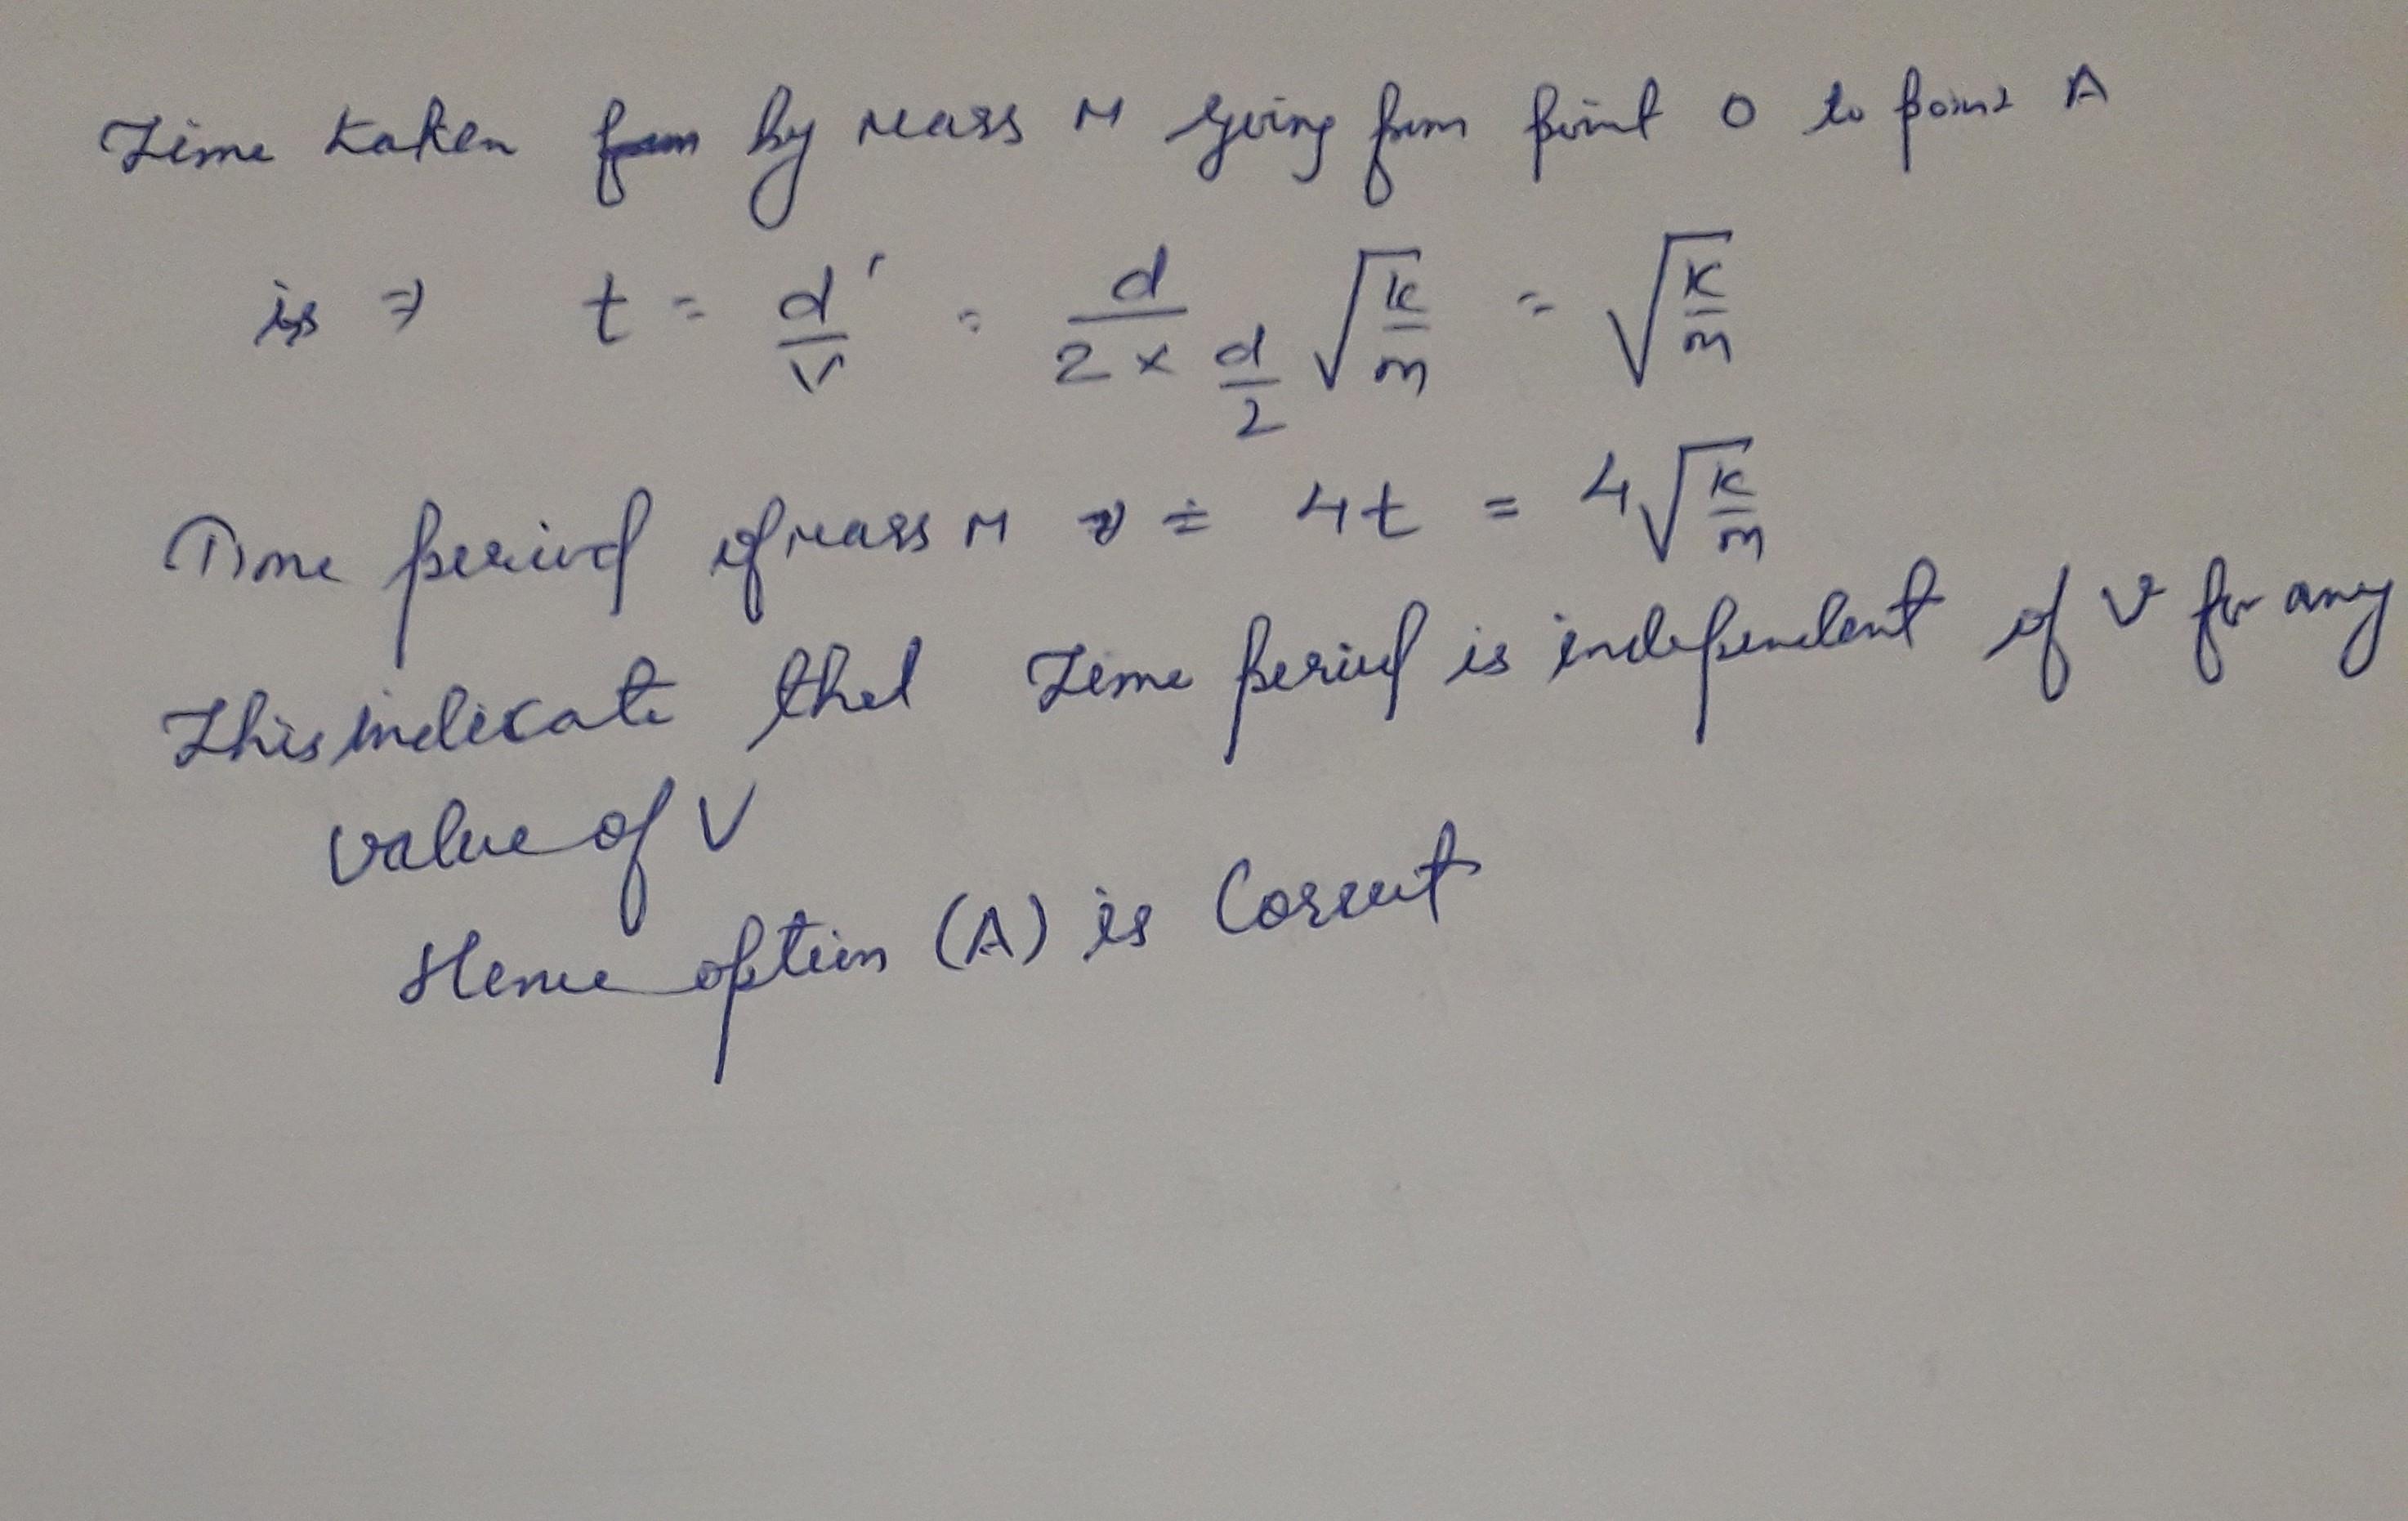 Time taken by mass M going from point O to point A
is ⇒ t = d'/v = d/(2 × d/2 √(k/m)) = √(K/m)
Time period of mass M = 4t = 4√(K/m)
This indicate that Time period is independent of v for any
value of V
Hence option (A) is Correct